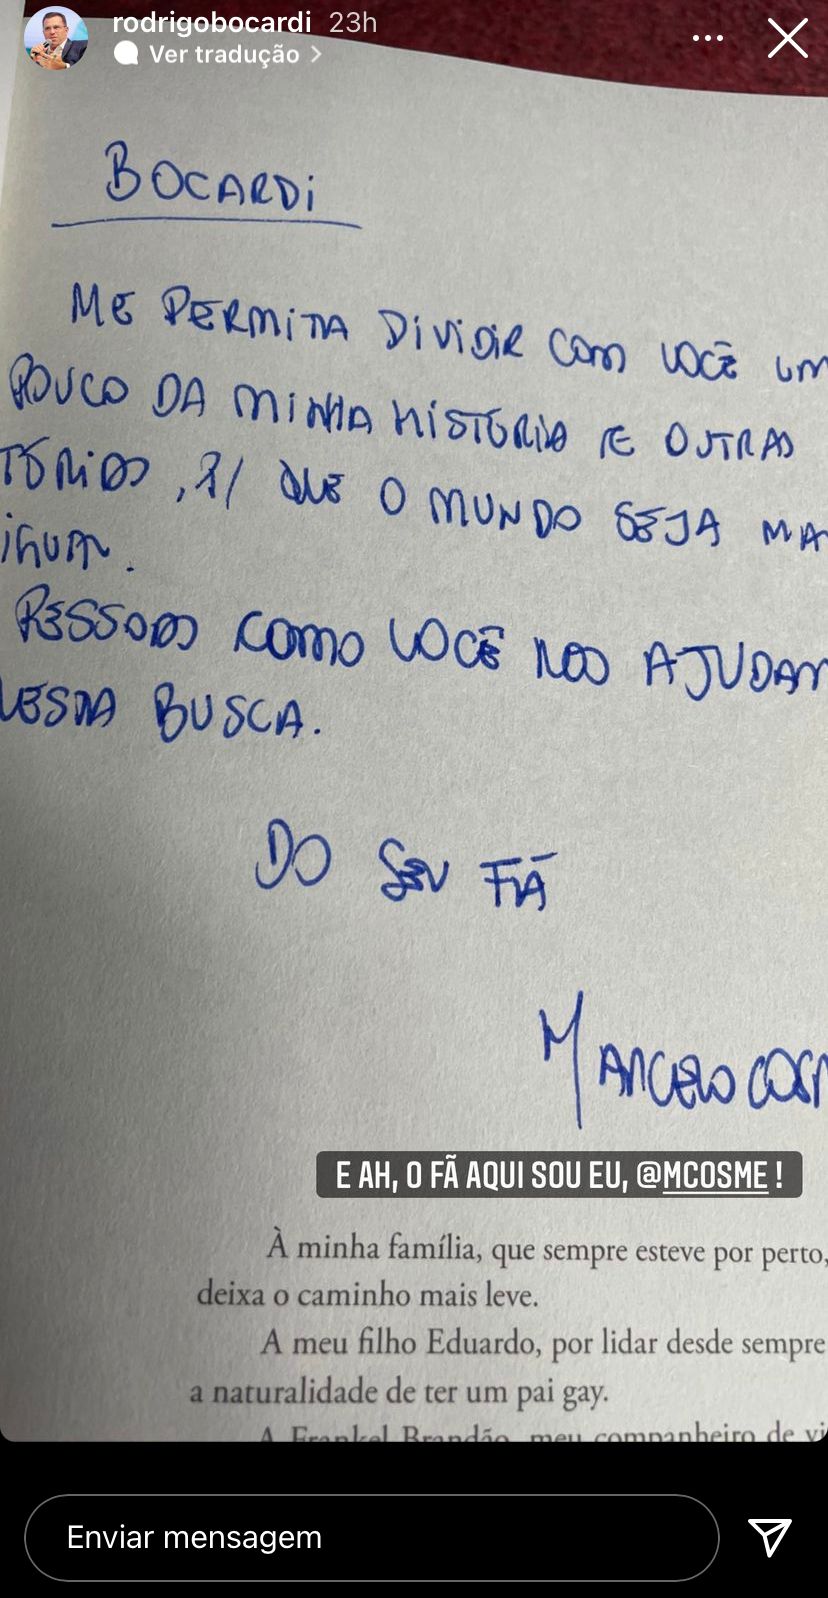 rodrigobocardi 23h
Ver tradução >
BOCARDi
ME PERMiTA DiViDiR COM VOCÊ UM
POUCO DA MiNHA HiSTÓRiA E OUTRAS
TÓRiAS, P/ QUE O MUNDO SEJA MA
iGUAL.
PESSOAS COMO VOCÊ NOS AJUDAM
NESTA BUSCA.
DO SEU FÃ
MARCELO COSM
E AH, O FÃ AQUI SOU EU, @MCOSME !
À minha família, que sempre esteve por perto,
deixa o caminho mais leve.
A meu filho Eduardo, por lidar desde sempre
a naturalidade de ter um pai gay.
A Frankel Brandão, meu companheiro de vi
Enviar mensagem